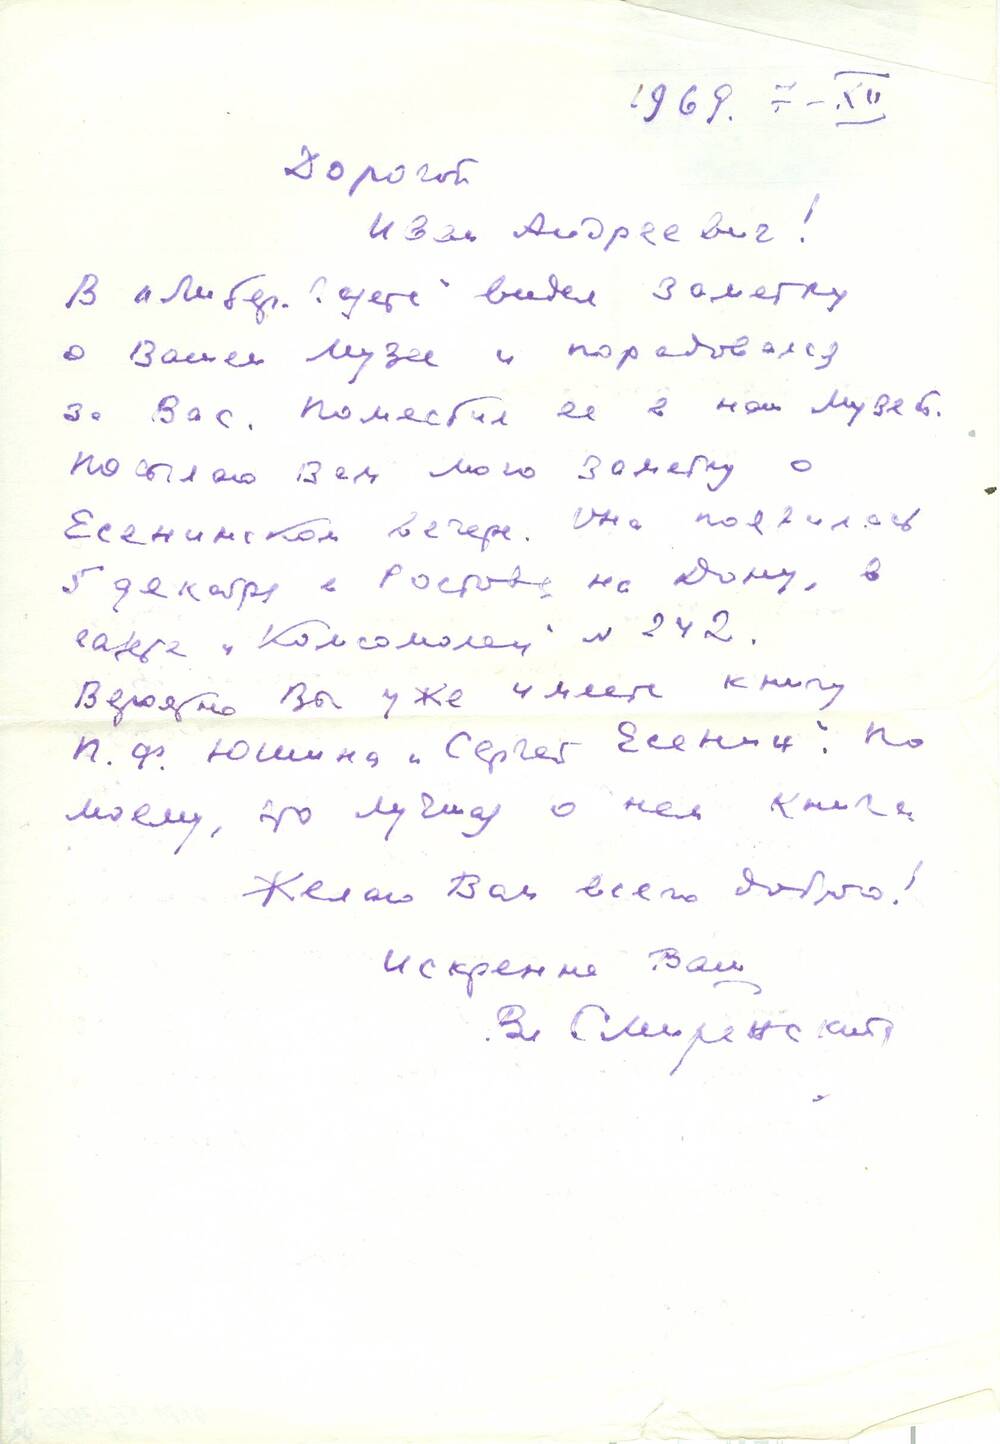 1969. 7 – XII
Дорогой
Иван Андреевич!
В „Литер. Газете“ видел заметку
о Вашем Музее и порадовался
за Вас. Поместил ее в наш Музей.
Посылаю Вам мою заметку о
Есенинском вечере. Она появилась
5 декабря в Ростове на Дону, в
газете „Комсомолец“ № 242.
Вероятно Вы уже имеете книгу
П. Ф. Юшина „Сергей Есенин“. По
моему, это лучшая о нем книга
Желаю Вам всего доброго!
Искренне Ваш
Вл Смиренский